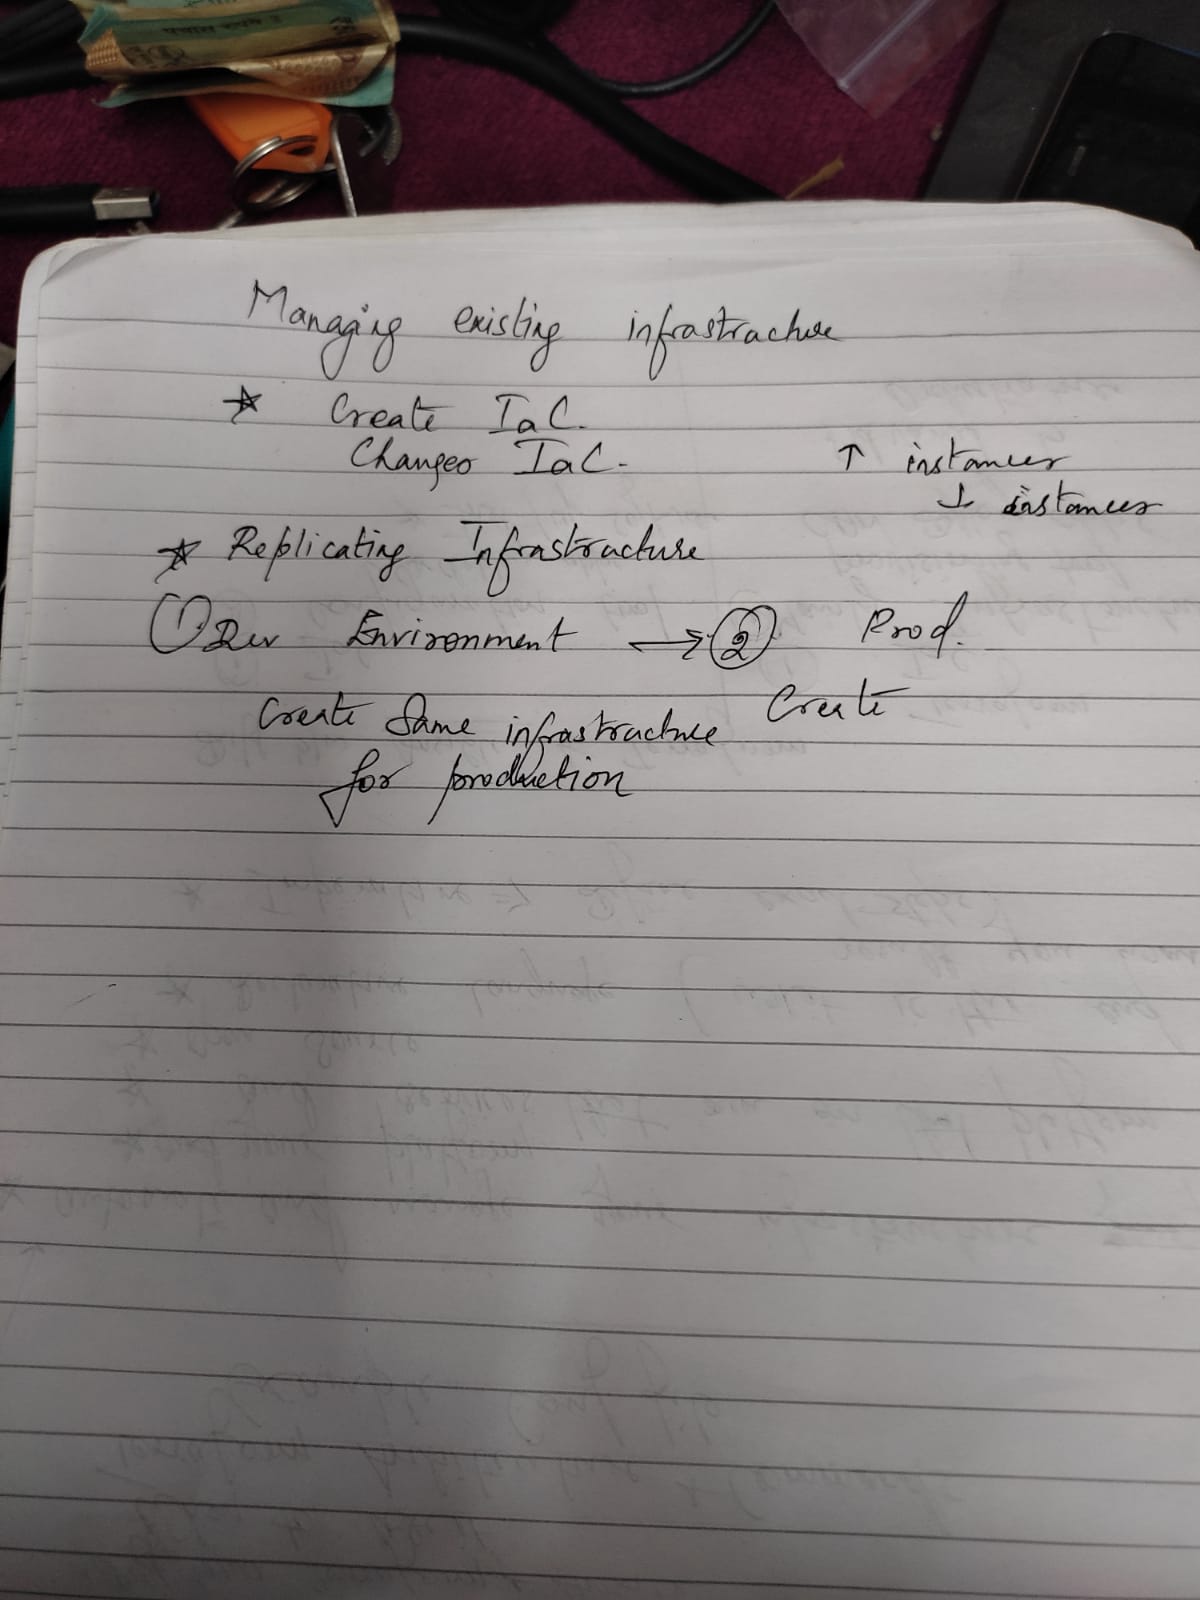 Managing existing infrastructure
* Create IaC.
Changes IaC. ↑ instances
↓ instances
* Replicating Infrastructure
① Dev Environment → ② Prod.
Create Same infrastructure Create
for production